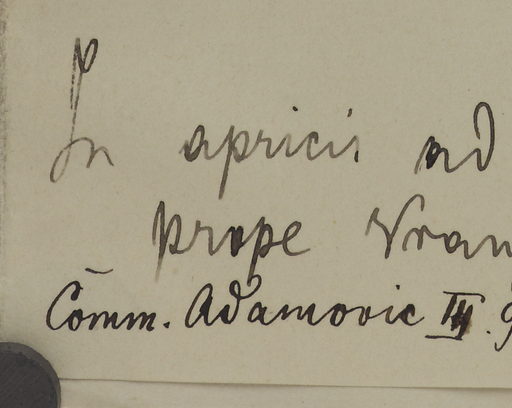 In apricis ad
prope Vran
Comm. Adamovic III. 9